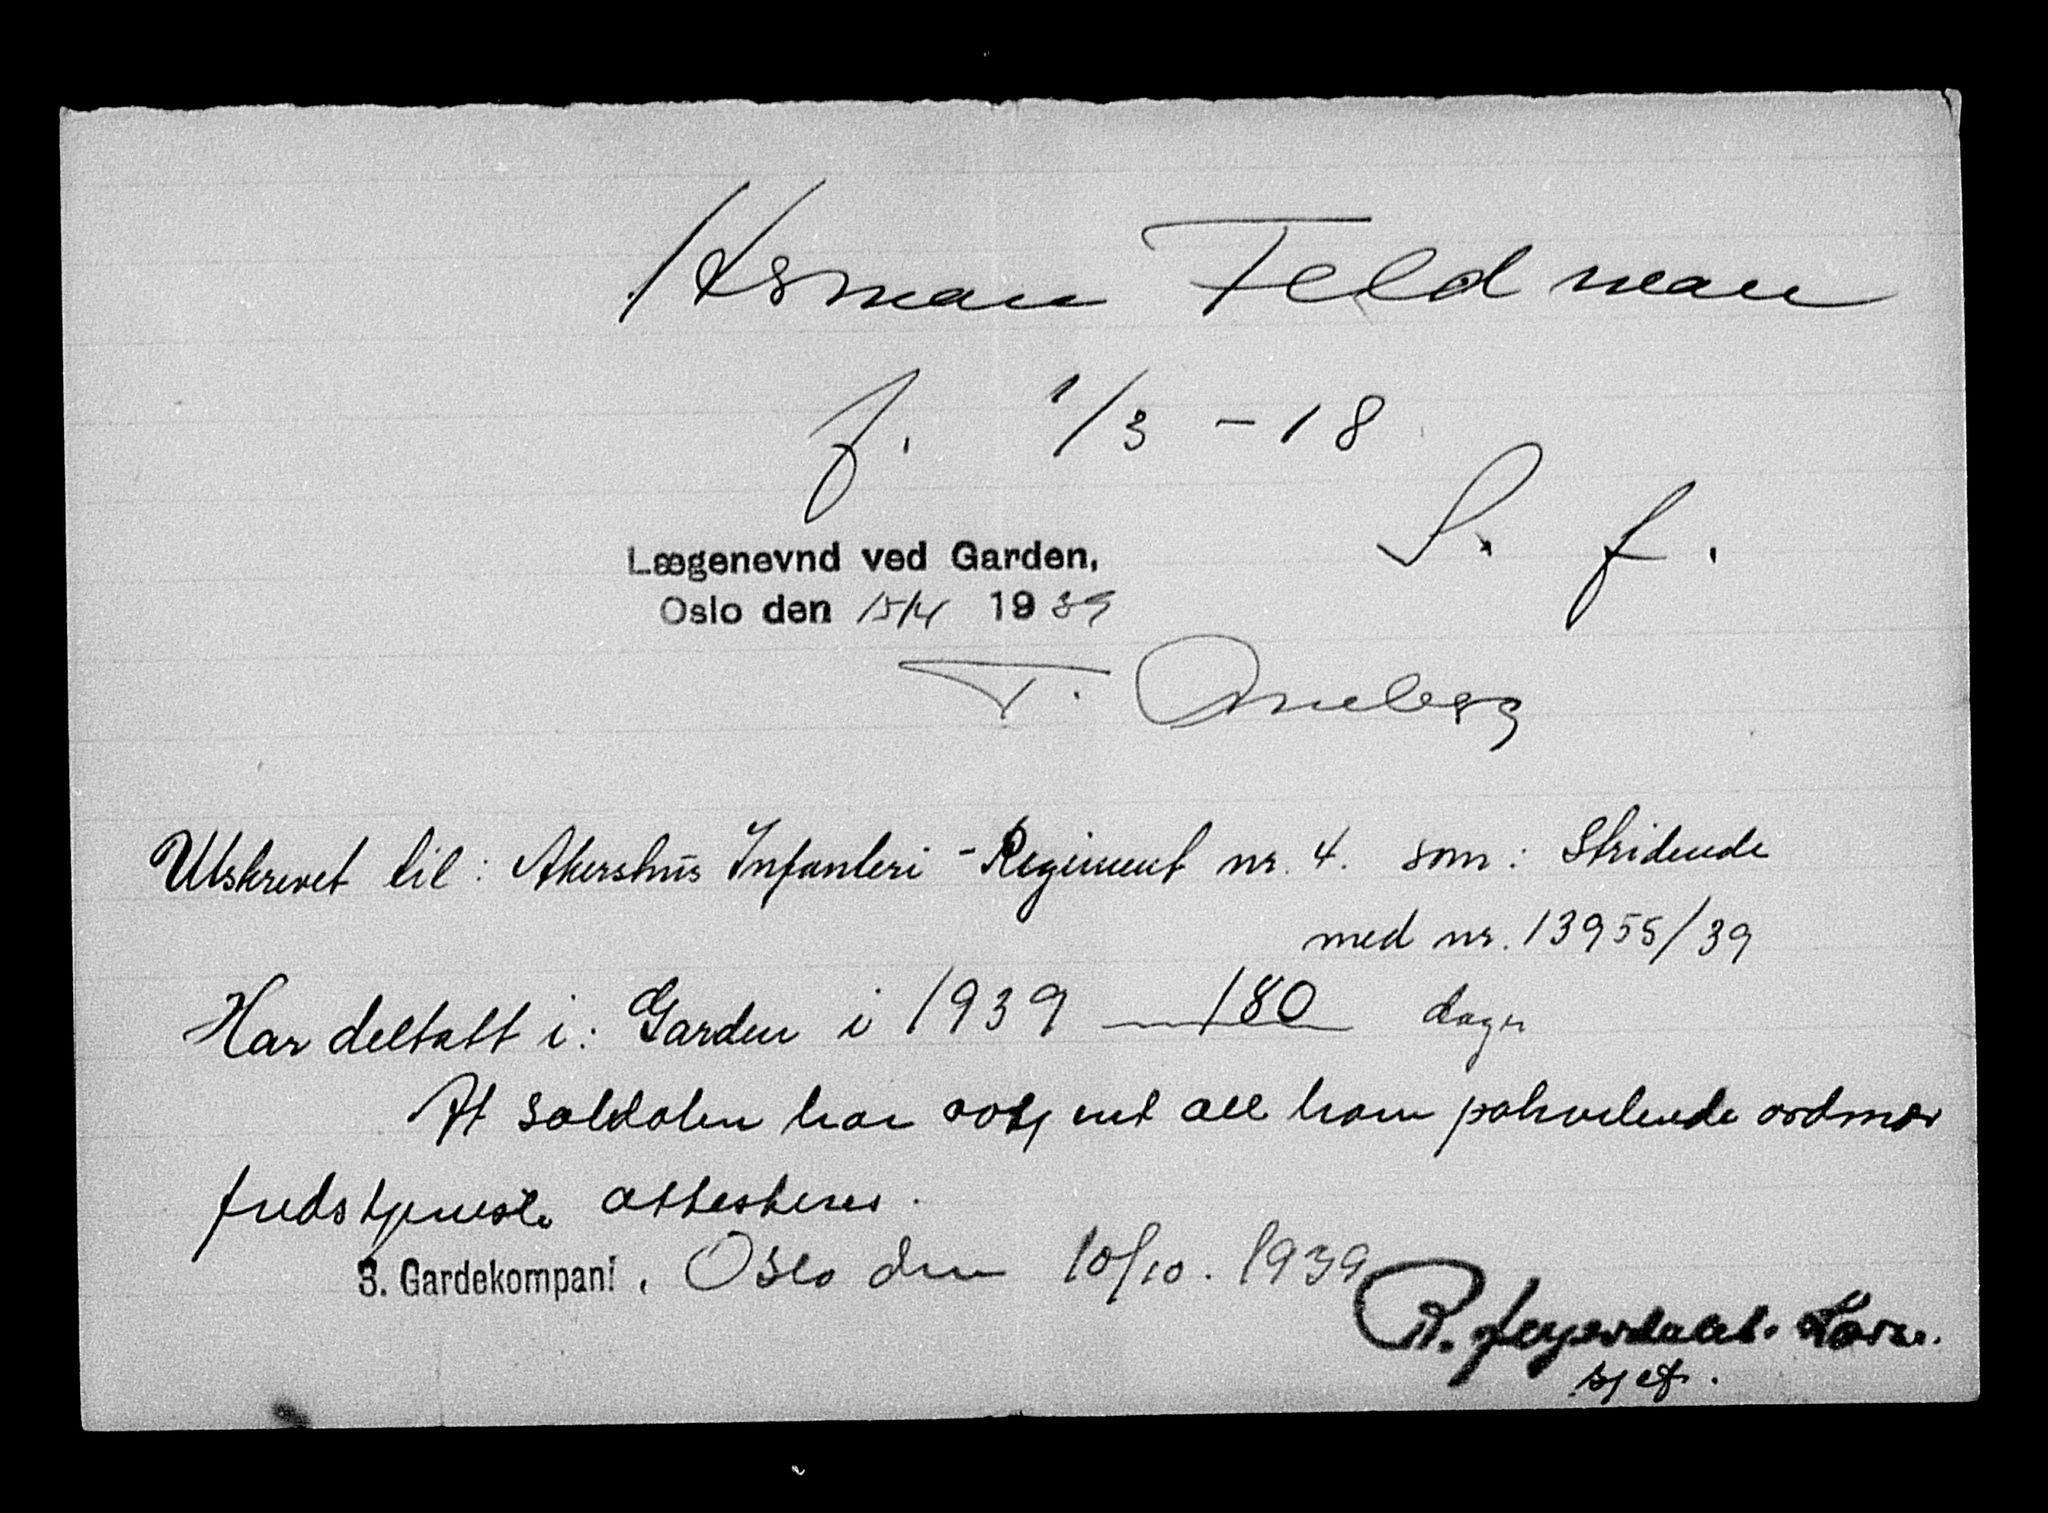 Herman Feldman
f. 1/3 - 18
S. f.
Lægenevnd ved Garden,
Oslo den 15/4 1939
T.
Utskrevet til: Akershus Infanteri-Regiment nr. 4. som: Stridende
med nr. 13955/39
Har deltatt i: Garden i 1939 180 dager
At soldaten har utj ent all ham påhvilende ordinær
fredstjeneste attesteres.
3. Gardekompani, Oslo den 10/10. 1939
R.
sjef.